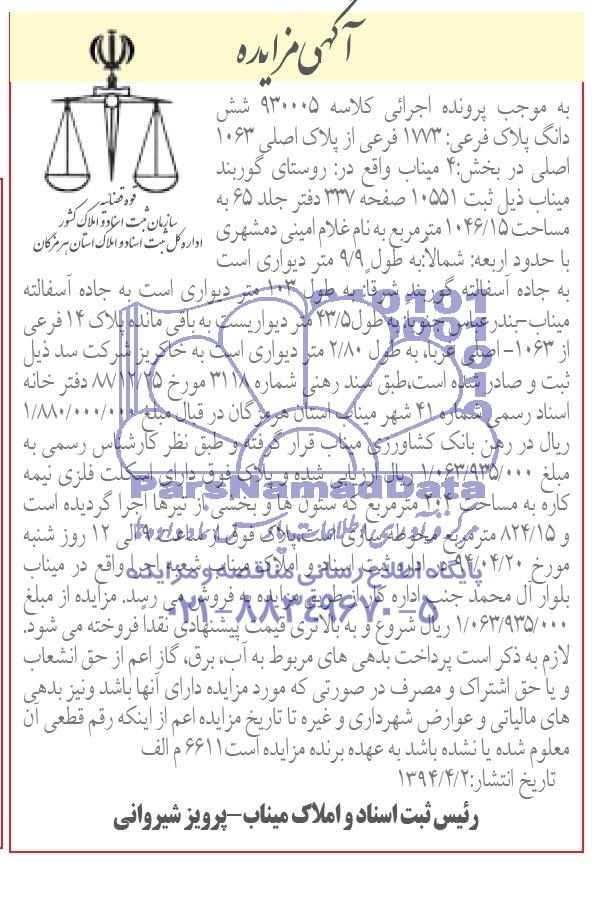 آگهی مزایده
قوه قضائیه
سازمان ثبت اسناد و املاک کشور
اداره کل ثبت اسناد و املاک استان هرمزگان
به موجب پرونده اجرائی کلاسه ۹۳۰۰۰۵ شش
دانگ پلاک فرعی: ۱۷۷۳ فرعی از پلاک اصلی ۱۰۶۳
اصلی در بخش:۴ میناب واقع در: روستای گوربند
میناب ذیل ثبت ۱۰۵۵۱ صفحه ۳۳۷ دفتر جلد ۶۵ به
مساحت ۱۰۴۶/۱۵ مترمربع به نام غلام امینی دمشهری
با حدود اربعه: شمالاً:به طول ۹/۹ متر دیواری است
به جاده آسفالته گوربند شرقاً: به طول ۱۰۳ متر دیواری است به جاده آسفالته
میناب-بندرعباس جنوبا: به طول۴۳/۵ متر دیواریست به باقی مانده پلاک ۱۴ فرعی
از ۱۰۶۳- اصلی غربا، به طول ۲/۸۰ متر دیواری است به خاکریز شرکت سد ذیل
ثبت و صادر شده است،طبق سند رهنی شماره ۳۱۱۸ مورخ ۸۸/۱۲/۲۵ دفتر خانه
اسناد رسمی شماره ۴۱ شهر میناب استان هرمزگان در قبال مبلغ ۱/۸۸۰/۰۰۰/۰۰۰
ریال در رهن بانک کشاورزی میناب قرار گرفته و طبق نظر کارشناس رسمی به
مبلغ ۱/۰۶۳/۹۳۵/۰۰۰ ریال ارزیابی شده و پلاک فوق دارای اسکلت فلزی نیمه
کاره به مساحت ۲۰۴ مترمربع که ستون ها و بخشی از تیرها اجرا گردیده است
و ۸۲۴/۱۵ مترمربع محوطه سازی است.پلاک فوق از ساعت ۹ الی ۱۲ روز شنبه
مورخ ۹۴/۰۴/۲۰ در اداره ثبت اسناد و املاک میناب شعبه اجرا واقع در میناب
بلوار آل محمد جنب اداره کار از طریق مزایده به فروش می رسد. مزایده از مبلغ
۱/۰۶۳/۹۳۵/۰۰۰ ریال شروع و به بالاتری قیمت پیشنهادی نقداً فروخته می شود.
لازم به ذکر است پرداخت بدهی های مربوط به آب، برق، گاز اعم از حق انشعاب
و یا حق اشتراک و مصرف در صورتی که مورد مزایده دارای آنها باشد ونیز بدهی
های مالیاتی و عوارض شهرداری و غیره تا تاریخ مزایده اعم از اینکه رقم قطعی آن
معلوم شده یا نشده باشد به عهده برنده مزایده است۶۶۱۱ م الف
تاریخ انتشار:۱۳۹۴/۴/۲
رئیس ثبت اسناد و املاک میناب-پرویز شیروانی
ParsNamadData
مرکز فرآوری اطلاعات پارس نماد داده ها
پایگاه اطلاع رسانی مناقصه و مزایده
۰۲۱-۸۸۳۴۹۶۷۰-۵